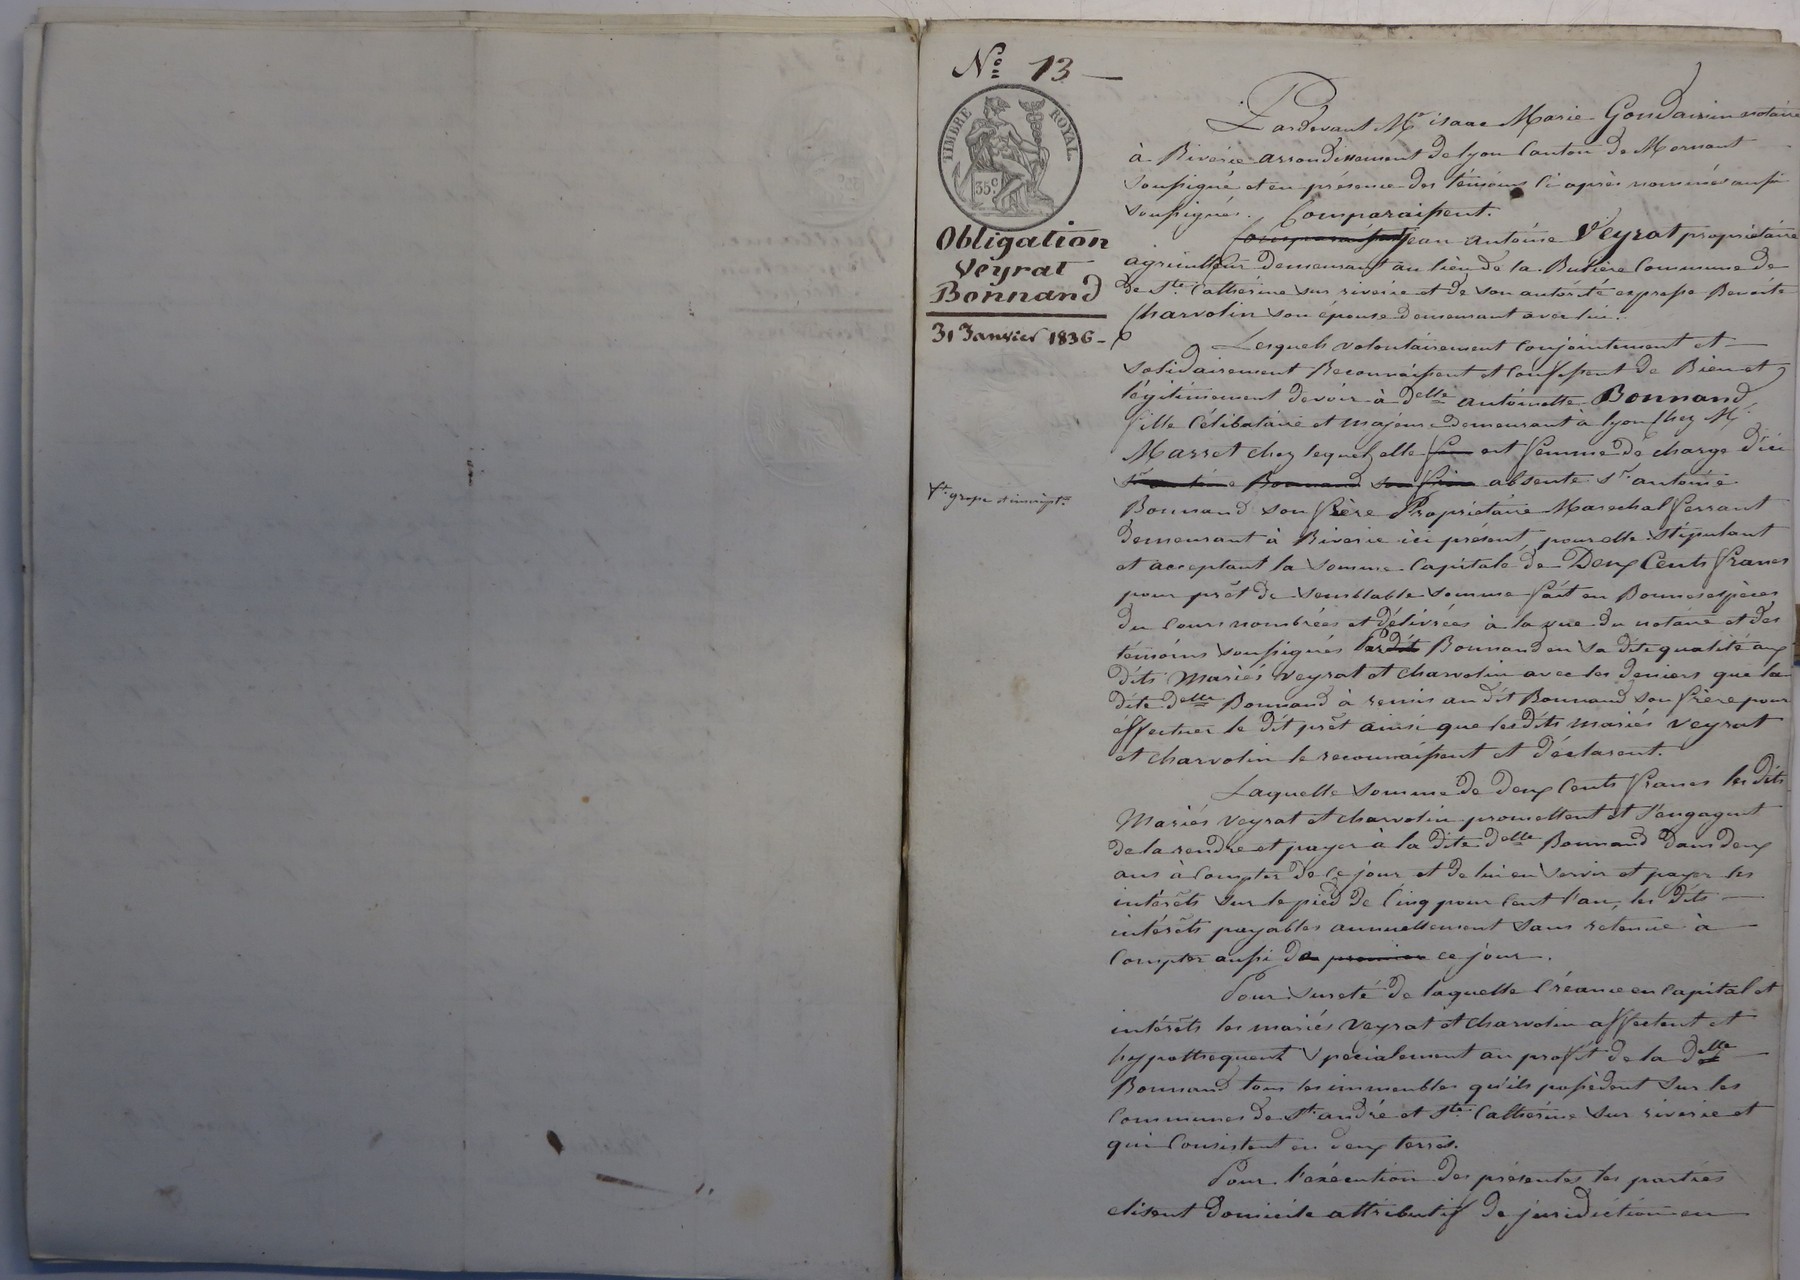 N° 13
TIMBRE ROYAL
35 c
Obligation
Veyrat
Bonnand
31 Janvier 1836
Pardevant Me isaac Marie Gondaire notaire
à Riverie arrondissement de lyon Canton de Mornant
soussigné et en présence des témoins ci après nommés aussi
soussignés. Comparaissent.
Jean Antoine Veyrat propriétaire
agriculteur demeurant au lieu de la Commune de
de Ste Catherine sur riverie et de son autorité expresse Benoite
Charvolin son épouse demeurant avec lui.
Lesquels volontairement conjointement et
solidairement Reconnaissent et confessent de Bien et
légitimement devoir à delle antoinette Bonnand
fille Célibataire et majeure demeurant à lyon Chez Mr
Marret chez lequel elle est femme de charge d'ici
absente Sr antoine
Bonnand son frère Propriétaire Marechal ferrant
demeurant à Riverie ici présent, pour elle stipulant
et acceptant la somme Capitale de Deux Cents francs
pour prêt de semblable somme fait en Bonnes espèces
du Cours nombrées et délivrées à la vue du notaire et des
témoins soussignés Par dit Bonnand en sa dite qualité aux
dits Mariés Veyrat et Charvolin avec les deniers que la
dite delle Bonnand à remis au dit Bonnand son frère pour
effectuer le dit prêt ainsi que les dits mariés Veyrat
et Charvolin le reconnaissent et déclarent.
Laquelle somme de deux Cents francs les dits
Mariés Veyrat et Charvolin promettent et s'engagent
de la rendre et payer à la dite delle Bonnand dans deux
ans à Compter de Ce jour et de lui en servir et payer les
intérêts sur le pied de Cinq pour Cent l'an, les dits
intérêts payables annuellement sans retenue à
Compter aussi de ce jour.
Pour sureté de laquelle Créance en Capital et
intérêts les mariés Veyrat et Charvolin affectent et
hypothequent specialement au profit de la delle
Bonnand tous les immeubles qu'ils possèdent sur les
Communes de St andré et Ste Catherine sur riverie et
qui Consistent en deux terres.
Pour l'exécution des présentes les parties
elisent domicile attributif de juridiction en